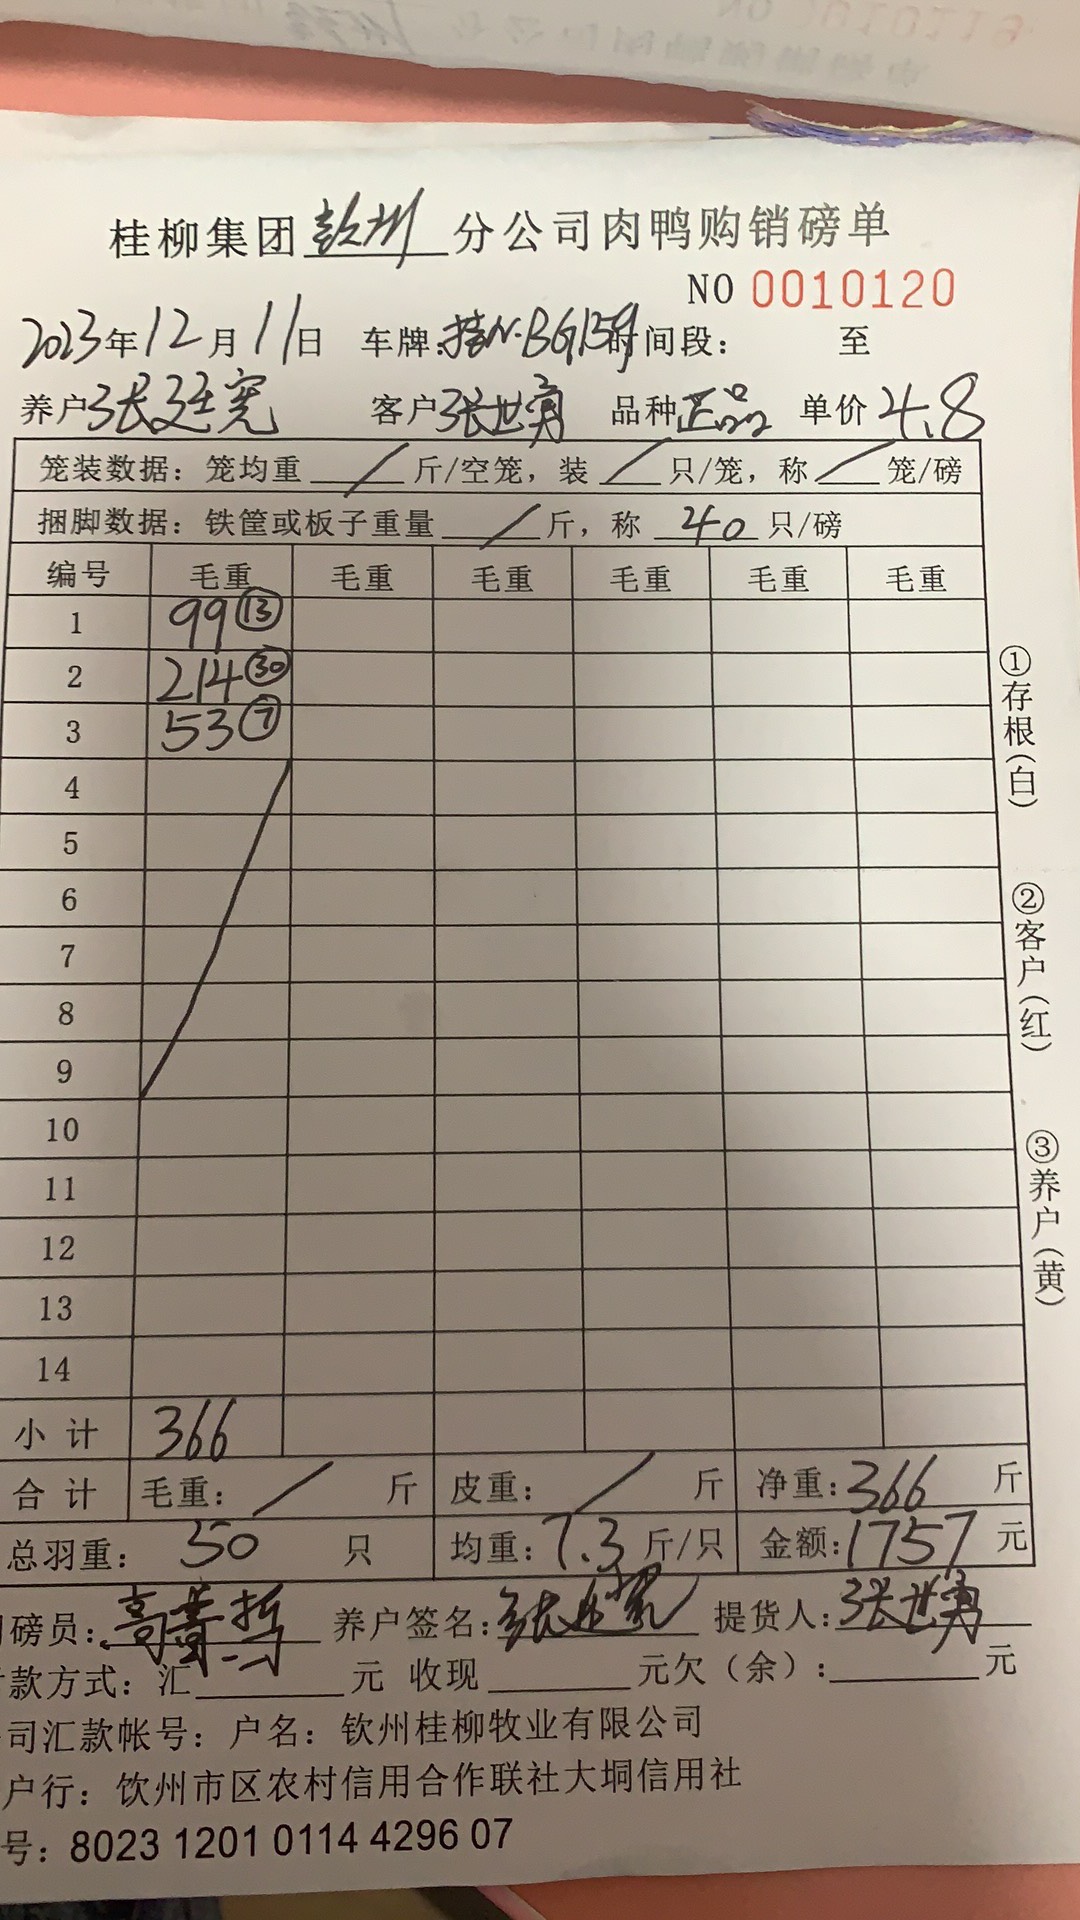 桂柳集团钦州分公司肉鸭购销磅单
NO 0010120
2023年12月11日 车牌:桂N·BG159 时间段: 至
养户张廷宽 客户张世勇 品种正品 单价4.8
笼装数据:笼均重/斤/空笼,装/只/笼,称/笼/磅
捆脚数据:铁筐或板子重量/斤,称40只/磅
编号 毛重 毛重 毛重 毛重 毛重 毛重
1 99⑬
2 214㉚
3 53⑦
4
5
6
7
8
9
10
11
12
13
14
小计 366
合计 毛重:/斤 皮重:/斤 净重:366斤
总羽重:50只 均重:7.3斤/只 金额:1757元
磅员: 养户签名:张廷宽 提货人:张世勇
款方式:汇 元 收现 元欠(余): 元
司汇款帐号:户名:钦州桂柳牧业有限公司
户行:钦州市区农村信用合作联社大垌信用社
号:8023 1201 0114 4296 07
①存根(白)
②客户(红)
③养户(黄)